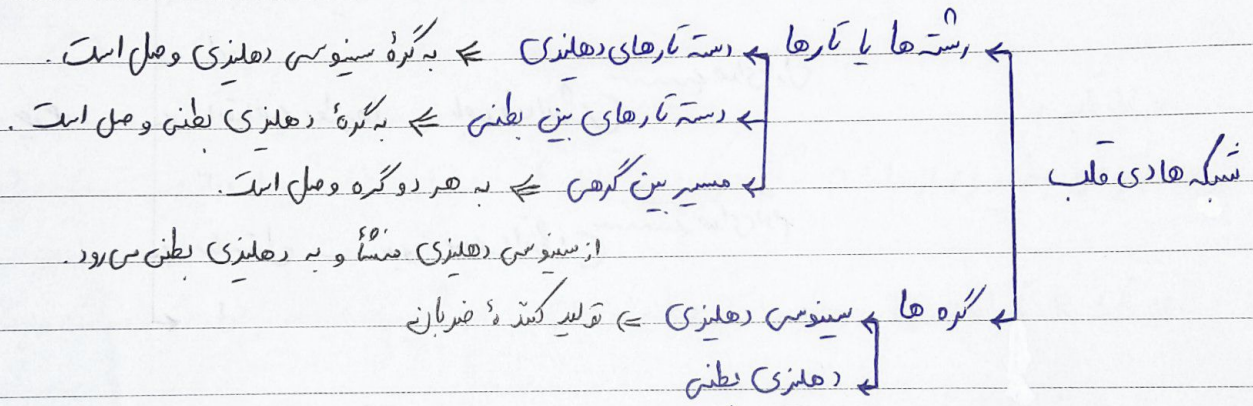 رشته ها یا تارها ← دسته تارهای دهلیزی ⇐ به گرۀ سینوسی دهلیزی وصل است.
دسته تارهای بین بطنی ⇐ به گرۀ دهلیزی بطنی وصل است.
شبکه هادی قلب
مسیر بین گرهی ⇐ به هر دو گره وصل است.
از سینوسی دهلیزی منشأ و به دهلیزی بطنی می رود.
گره ها ← سینوسی دهلیزی ⇐ تولید کنندۀ ضربان
دهلیزی بطنی